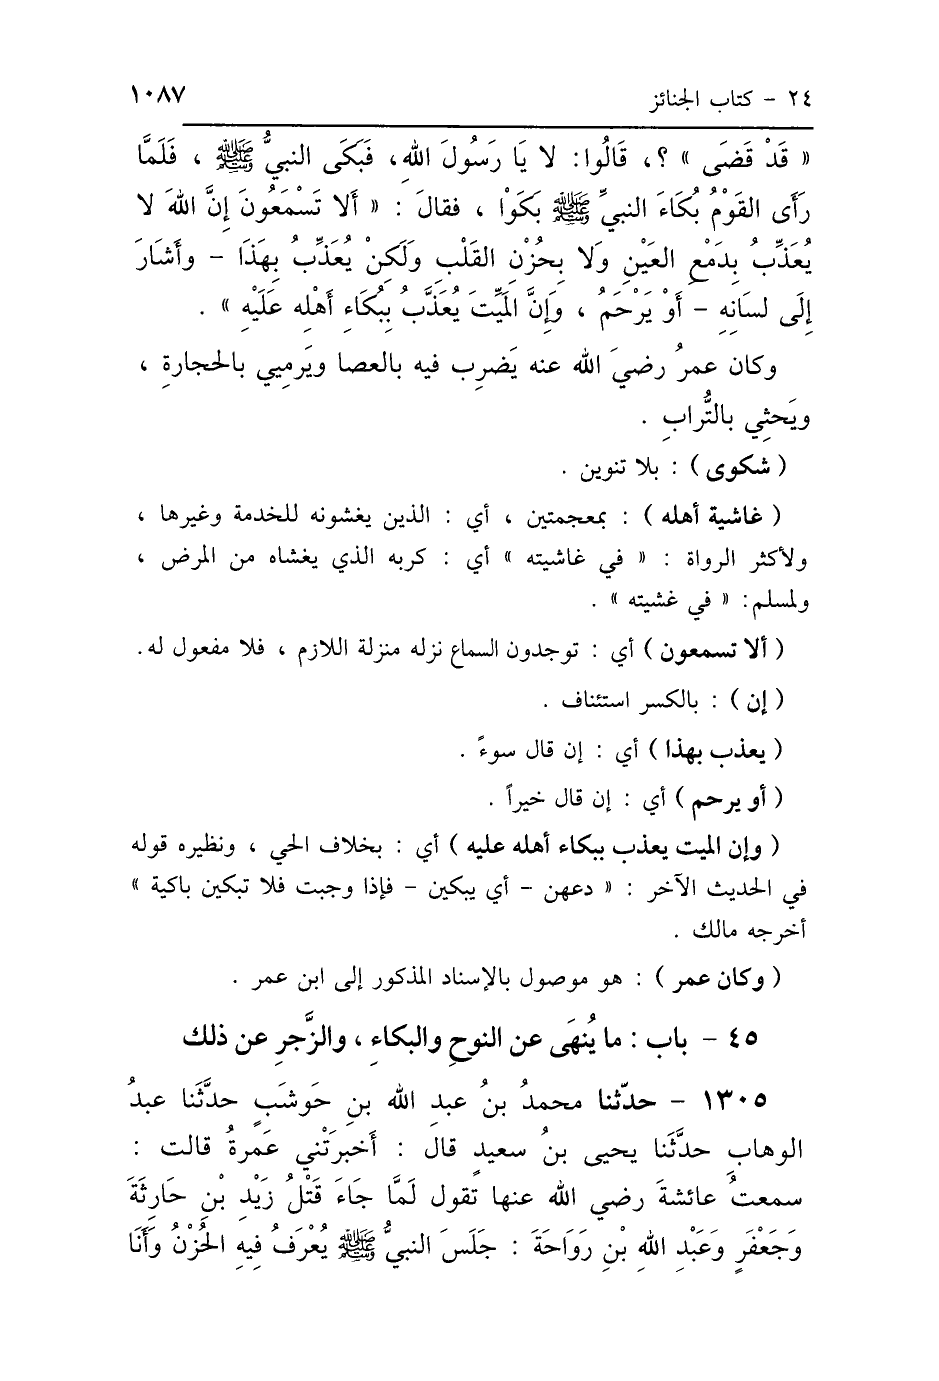 ٢٤ - كتاب الجنائز ١٠٨٧
« قَدْ قَضَى » ؟، قَالُوا: لا يَا رَسُولَ اللهِ، فَبَكَى النبيُّ ﷺ ، فَلَمَّا
رَأَى القَوْمُ بُكَاءَ النبيِّ ﷺ بَكَوْا ، فقالَ : « أَلا تَسْمَعُونَ إِنَّ اللهَ لا
يُعَذِّبُ بِدَمْعِ العَيْنِ وَلا بِحُزْنِ القَلْبِ وَلَكِنْ يُعَذِّبُ بِهَذَا - وأَشَارَ
إِلَى لسَانِهِ - أَوْ يَرْحَمُ ، وَإِنَّ المَيِّتَ يُعَذَّبُ بِبُكَاءِ أَهْلِهِ عَلَيْهِ » .
وكان عمرُ رضيَ الله عنه يَضرِب فيه بالعصا ويَرمِيي بالحجارةِ ،
ويَحثِي بالتُّرابِ .
( شكوى ) : بلا تنوين .
( غاشية أهله ) : بمعجمتين ، أي : الذين يغشونه للخدمة وغيرها ،
ولأكثر الرواة : « في غاشيته » أي : كربه الذي يغشاه من المرض ،
ولمسلم: « في غشيته » .
( ألا تسمعون ) أي : توجدون السماع نزله منزلة اللازم ، فلا مفعول له.
( إن ) : بالكسر استئناف .
( يعذب بهذا ) أي : إن قال سوءً .
( أو يرحم ) أي : إن قال خيراً .
( وإن الميت يعذب ببكاء أهله عليه ) أي : بخلاف الحي ، ونظيره قوله
في الحديث الآخر : « دعهن - أي يبكين - فإذا وجبت فلا تبكين باكية »
أخرجه مالك .
( وكان عمر ) : هو موصول بالإسناد المذكور إلى ابن عمر .
٤٥ - باب : ما يُنهَى عن النوحِ والبكاءِ ، والزَّجرِ عن ذلك
١٣٠٥ - حدّثنا محمدُ بنُ عبدِ الله بنِ حَوشَبٍ حدَّثَنا عبدُ
الوهابِ حدَّثَنا يحيى بنُ سعيدٍ قال : أَخبرَتْني عَمرةُ قالت :
سمعتُ عائشةَ رضي الله عنها تقول لَمَّا جَاءَ قَتْلُ زَيْدِ بْنِ حَارِثَةَ
وَجَعْفَرٍ وَعَبْدِ اللهِ بْنِ رَوَاحَةَ : جَلَسَ النبيُّ ﷺ يُعْرَفُ فِيهِ الحُزْنُ وَأَنَا